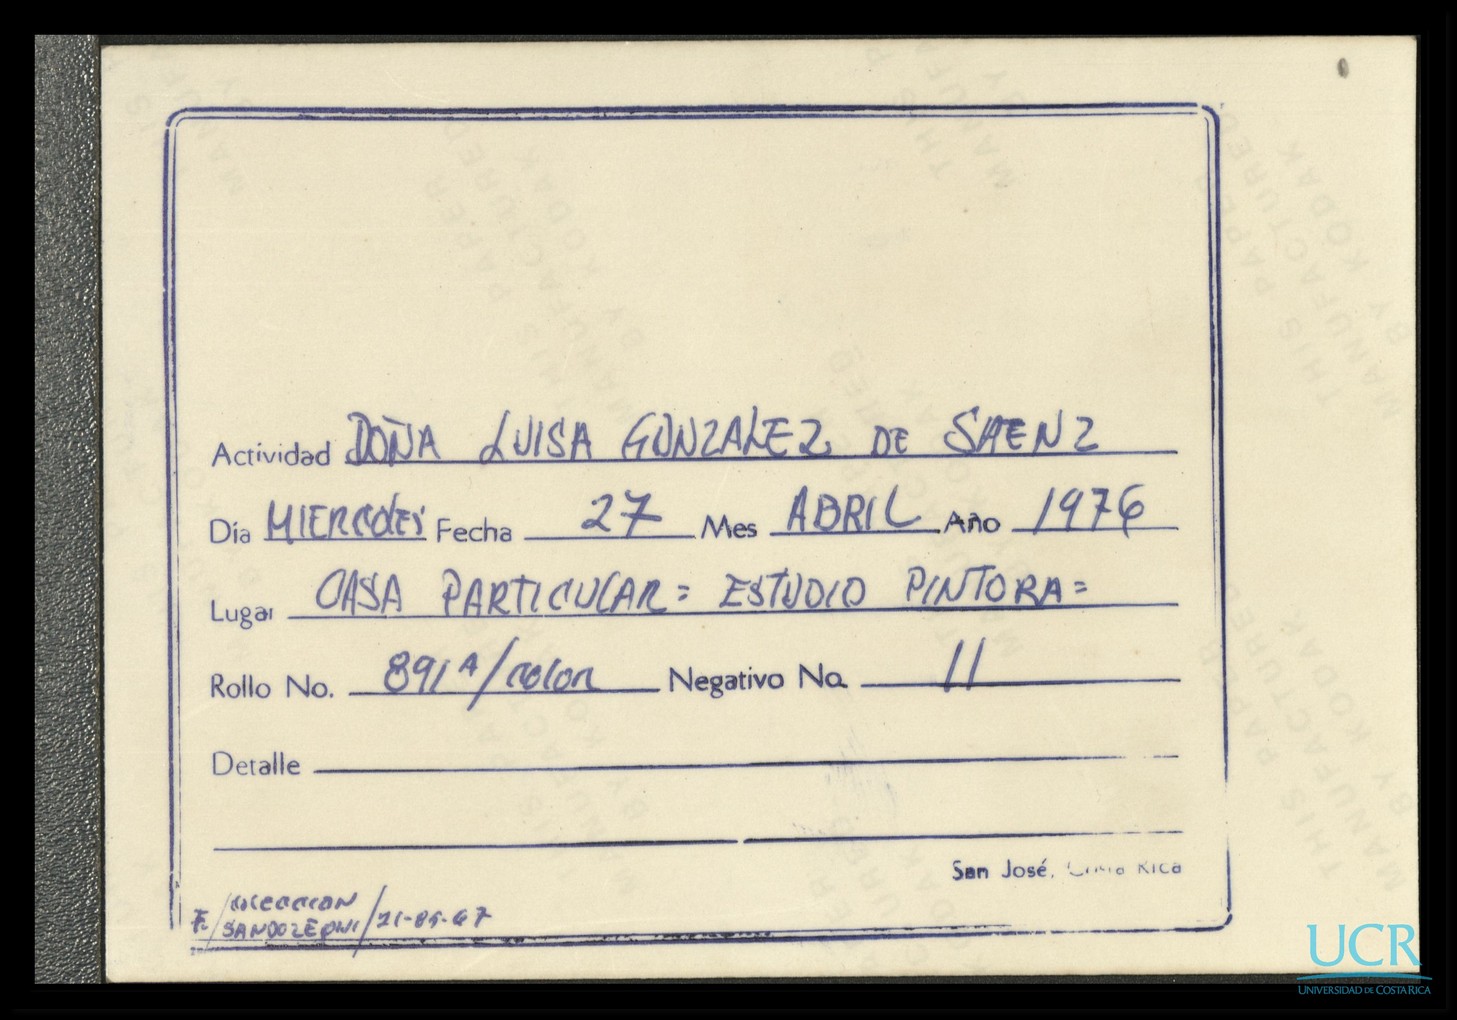 Actividad DOÑA LUISA GONZALEZ DE SAENZ
Día MIERCOLES Fecha 27 Mes ABRIL Año 1976
Lugar CASA PARTICULAR = ESTUDIO PINTORA =
Rollo No. 891 A/color Negativo No. 11
Detalle
San José, Costa Rica
F/COLECCION
SANDOZEQUI/21-85-67
UCR
UNIVERSIDAD DE COSTA RICA
THIS PAPER
MANUFACTURED
BY KODAK